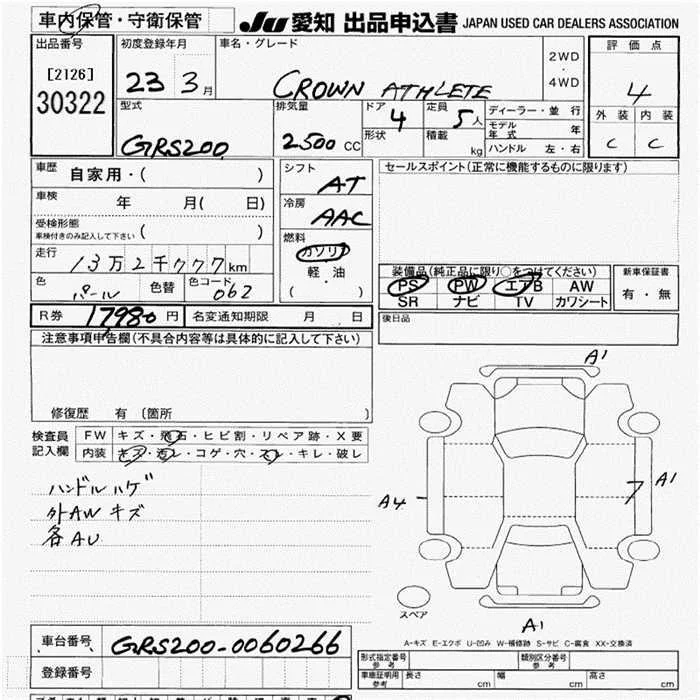 車内保管・守衛保管
JU 愛知 出品申込書 JAPAN USED CAR DEALERS ASSOCIATION
出品番号
[2126]
30322
初度登録年月
23 3月
車名・グレード
CROWN ATHLETE
2WD
・
4WD
評価点
4
外装 内装
C C
型式
GRS200
排気量
2500 CC
ドア 4
形状
定員 5人
積載 kg
ディーラー・並行
モデル年式 年
ハンドル 左・右
車歴 自家用・( )
車検 年 月( 日)
受検形態
車検付きのみ記入して下さい ( )
走行 13万2千777km
色 パール 色替 色コード 062
シフト
AT
冷房
AAC
燃料
ガソリン
軽油
( )
セールスポイント(正常に機能するものに限ります)
装備品(純正品に限り○をつけてください)
PS PW エアB AW
SR ナビ TV カワシート
新車保証書
有・無
R券 17980円 名変通知期限 月 日
後日品
注意事項申告欄(不具合内容等は具体的に記入して下さい)
修復歴 有 〔箇所 〕
検査員記入欄
FW キズ・飛石・ヒビ割・リペア跡・X要
内装 キズ・汚レ・コゲ・穴・スレ・キレ・破レ
ハンドルハゲ
外AW キズ
各AU
A1
A4
A1
7
スペア
A1
A-キズ E-エクボ U-凹み W-補修跡 S-サビ C-腐食 XX-交換済
車台番号 GRS200-0060266
登録番号
形式指定番号 参考
類別区分番号 参考
車庫証明用 参考 長さ 幅 高さ
cm cm cm